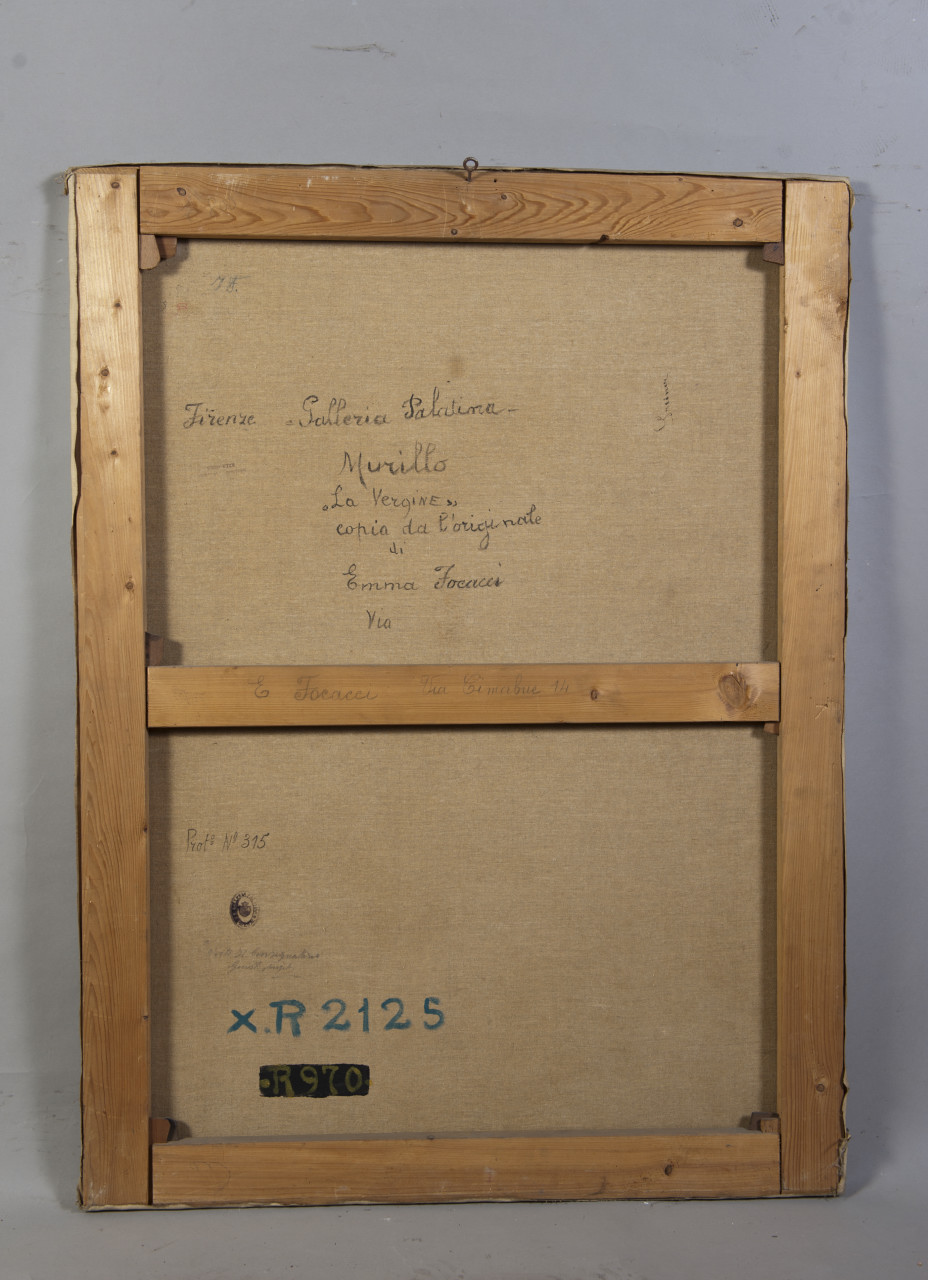 Firenze - Galleria Palatina -
Murillo
„La Vergine„
copia da l'originale
di
Emma Focacci
Via
E Focacci Via Cimabue 14
Prot° N° 315
x.R 2125
•R970•